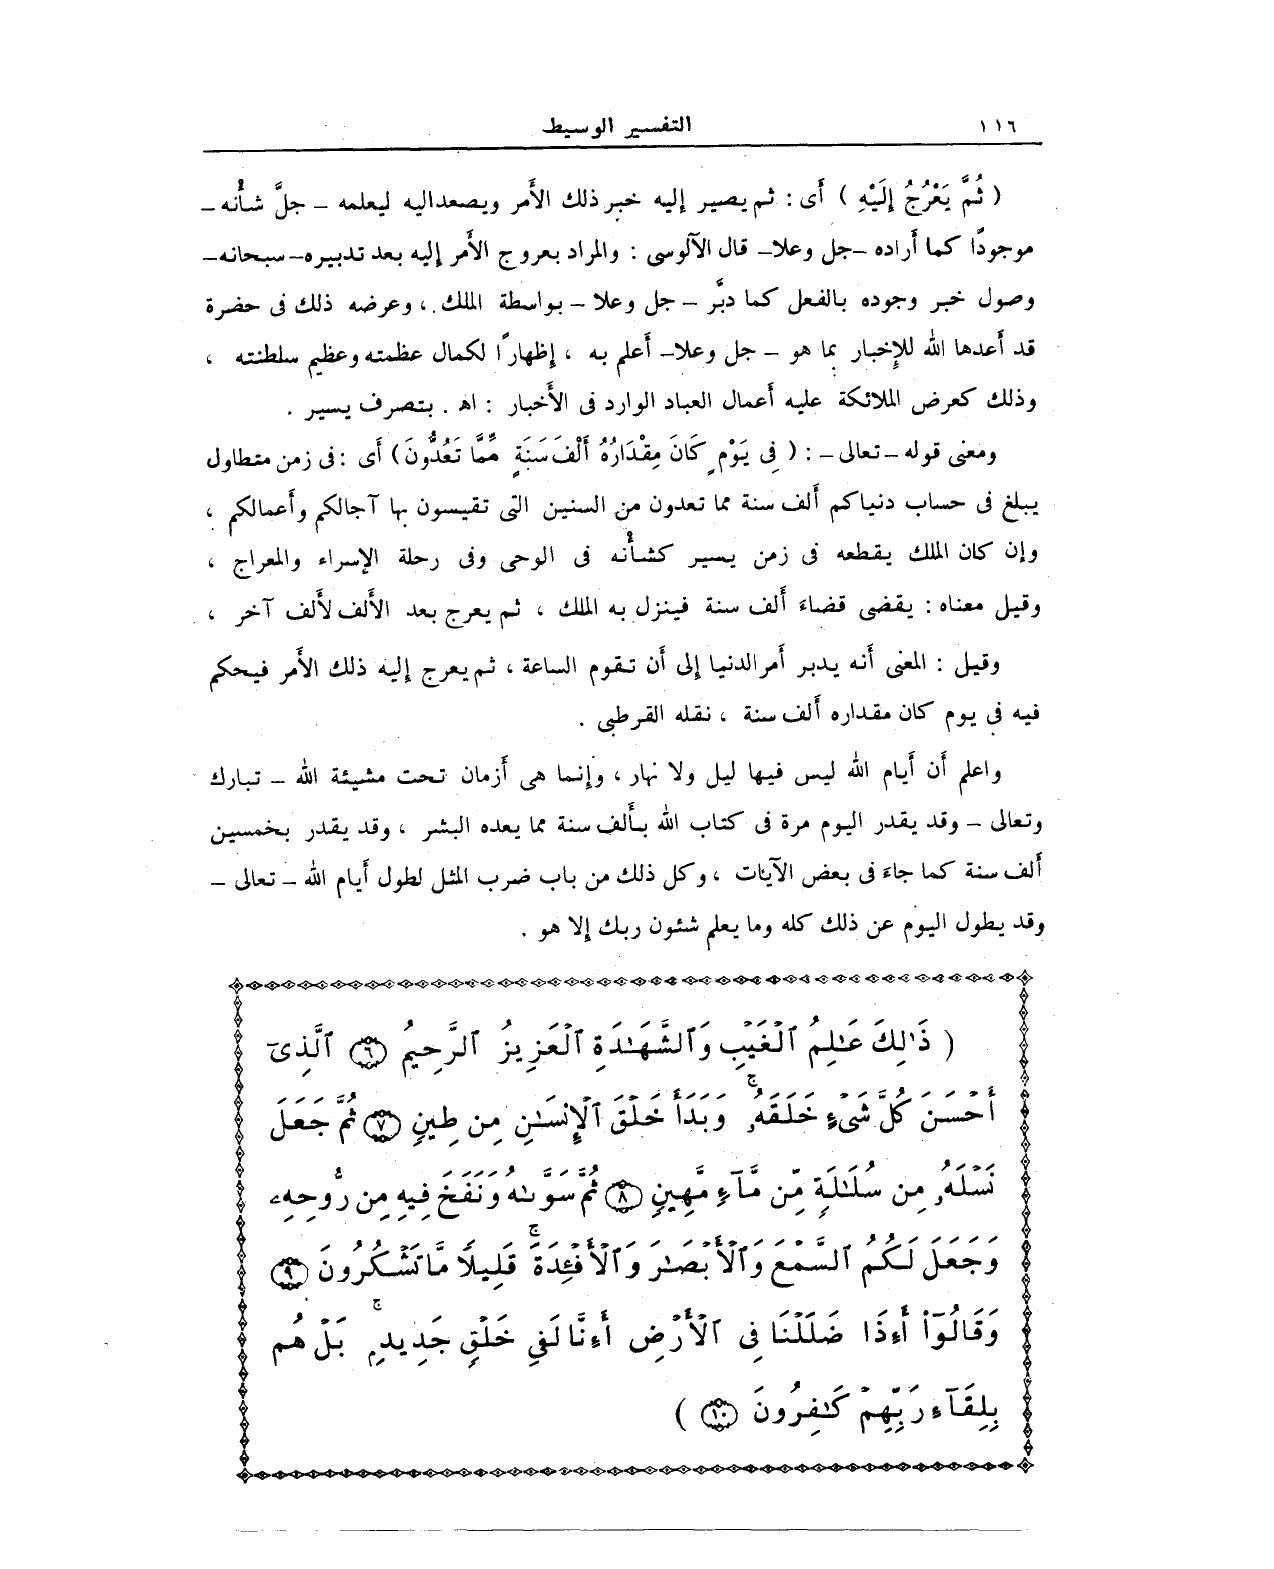 ١١٦ التفسير الوسيط
( ثُمَّ يَعْرُجُ إِلَيْهِ ) أَى : ثم يصير إليه خبر ذلك الأَمر ويصعداليه ليعلمه - جلَّ شأْنه -
موجودًا كما أَراده - جل وعلا - قال الآلوسى : والمراد بعروج الأَمر إليه بعد تدبيره - سبحانه -
وصول خبر وجوده بالفعل كما دبَّر - جل وعلا - بواسطة الملك ، وعرضه ذلك فى حضرة
قد أَعدها الله للإِخبار بما هو - جل وعلا - أَعلم به ، إِظهارًا لكمال عظمته وعظيم سلطنته ،
وذلك كعرض الملائكة عليه أَعمال العباد الوارد فى الأَخبار : اه . بتصرف يسير .
ومعنى قوله - تعالى - : ( فِى يَوْمٍ كَانَ مِقْدَارُهُ أَلْفَ سَنَةٍ مِّمَّا تَعُدُّونَ ) أَى : فى زمن متطاول
يبلغ فى حساب دنياكم أَلف سنة مما تعدون من السنين التى تقيسون بها آجالكم وأَعمالكم ،
وإن كان الملك يقطعه فى زمن يسير كشأْنه فى الوحى وفى رحلة الإسراء والمعراج ،
وقيل معناه : يقضى قضاءَ أَلف سنة فينزل به الملك ، ثم يعرج بعد الأَلف لأَلف آخر ،
وقيل : المعنى أَنه يدبر أَمر الدنيا إلى أَن تقوم الساعة ، ثم يعرج إليه ذلك الأَمر فيحكم
فيه فى يوم كان مقداره أَلف سنة ، نقله القرطبى .
واعلم أَن أَيام الله ليس فيها ليل ولا نهار ، وإنما هى أَزمان تحت مشيئة الله - تبارك
وتعالى - وقد يقدر اليوم مرة فى كتاب الله بأَلف سنة مما يعده البشر ، وقد يقدر بخمسين
أَلف سنة كما جاءَ فى بعض الآيات ، وكل ذلك من باب ضرب المثل لطول أَيام الله - تعالى -
وقد يطول اليوم عن ذلك كله وما يعلم شئون ربك إلا هو .
( ذَٰلِكَ عَٰلِمُ ٱلْغَيْبِ وَٱلشَّهَٰدَةِ ٱلْعَزِيزُ ٱلرَّحِيمُ ۝٦ ٱلَّذِىٓ
أَحْسَنَ كُلَّ شَىْءٍ خَلَقَهُۥ ۚ وَبَدَأَ خَلْقَ ٱلْإِنسَٰنِ مِن طِينٍ ۝٧ ثُمَّ جَعَلَ
نَسْلَهُۥ مِن سُلَٰلَةٍ مِّن مَّآءٍ مَّهِينٍ ۝٨ ثُمَّ سَوَّىٰهُ وَنَفَخَ فِيهِ مِن رُّوحِهِۦ
وَجَعَلَ لَكُمُ ٱلسَّمْعَ وَٱلْأَبْصَٰرَ وَٱلْأَفْـِٔدَةَ ۚ قَلِيلًا مَّا تَشْكُرُونَ ۝٩
وَقَالُوٓا۟ أَءِذَا ضَلَلْنَا فِى ٱلْأَرْضِ أَءِنَّا لَفِى خَلْقٍ جَدِيدٍۭ ۚ بَلْ هُم
بِلِقَآءِ رَبِّهِمْ كَٰفِرُونَ ۝١٠ )